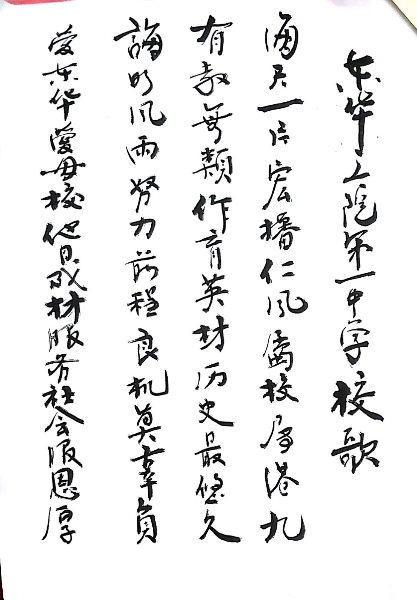 东华三院第一中学校歌
海天一片宏播仁风属校居港九
有教無類作育英材历史最悠久
誨明风雨努力前程良机莫辜負
愛东华愛母校他日成材服务社会报恩厚